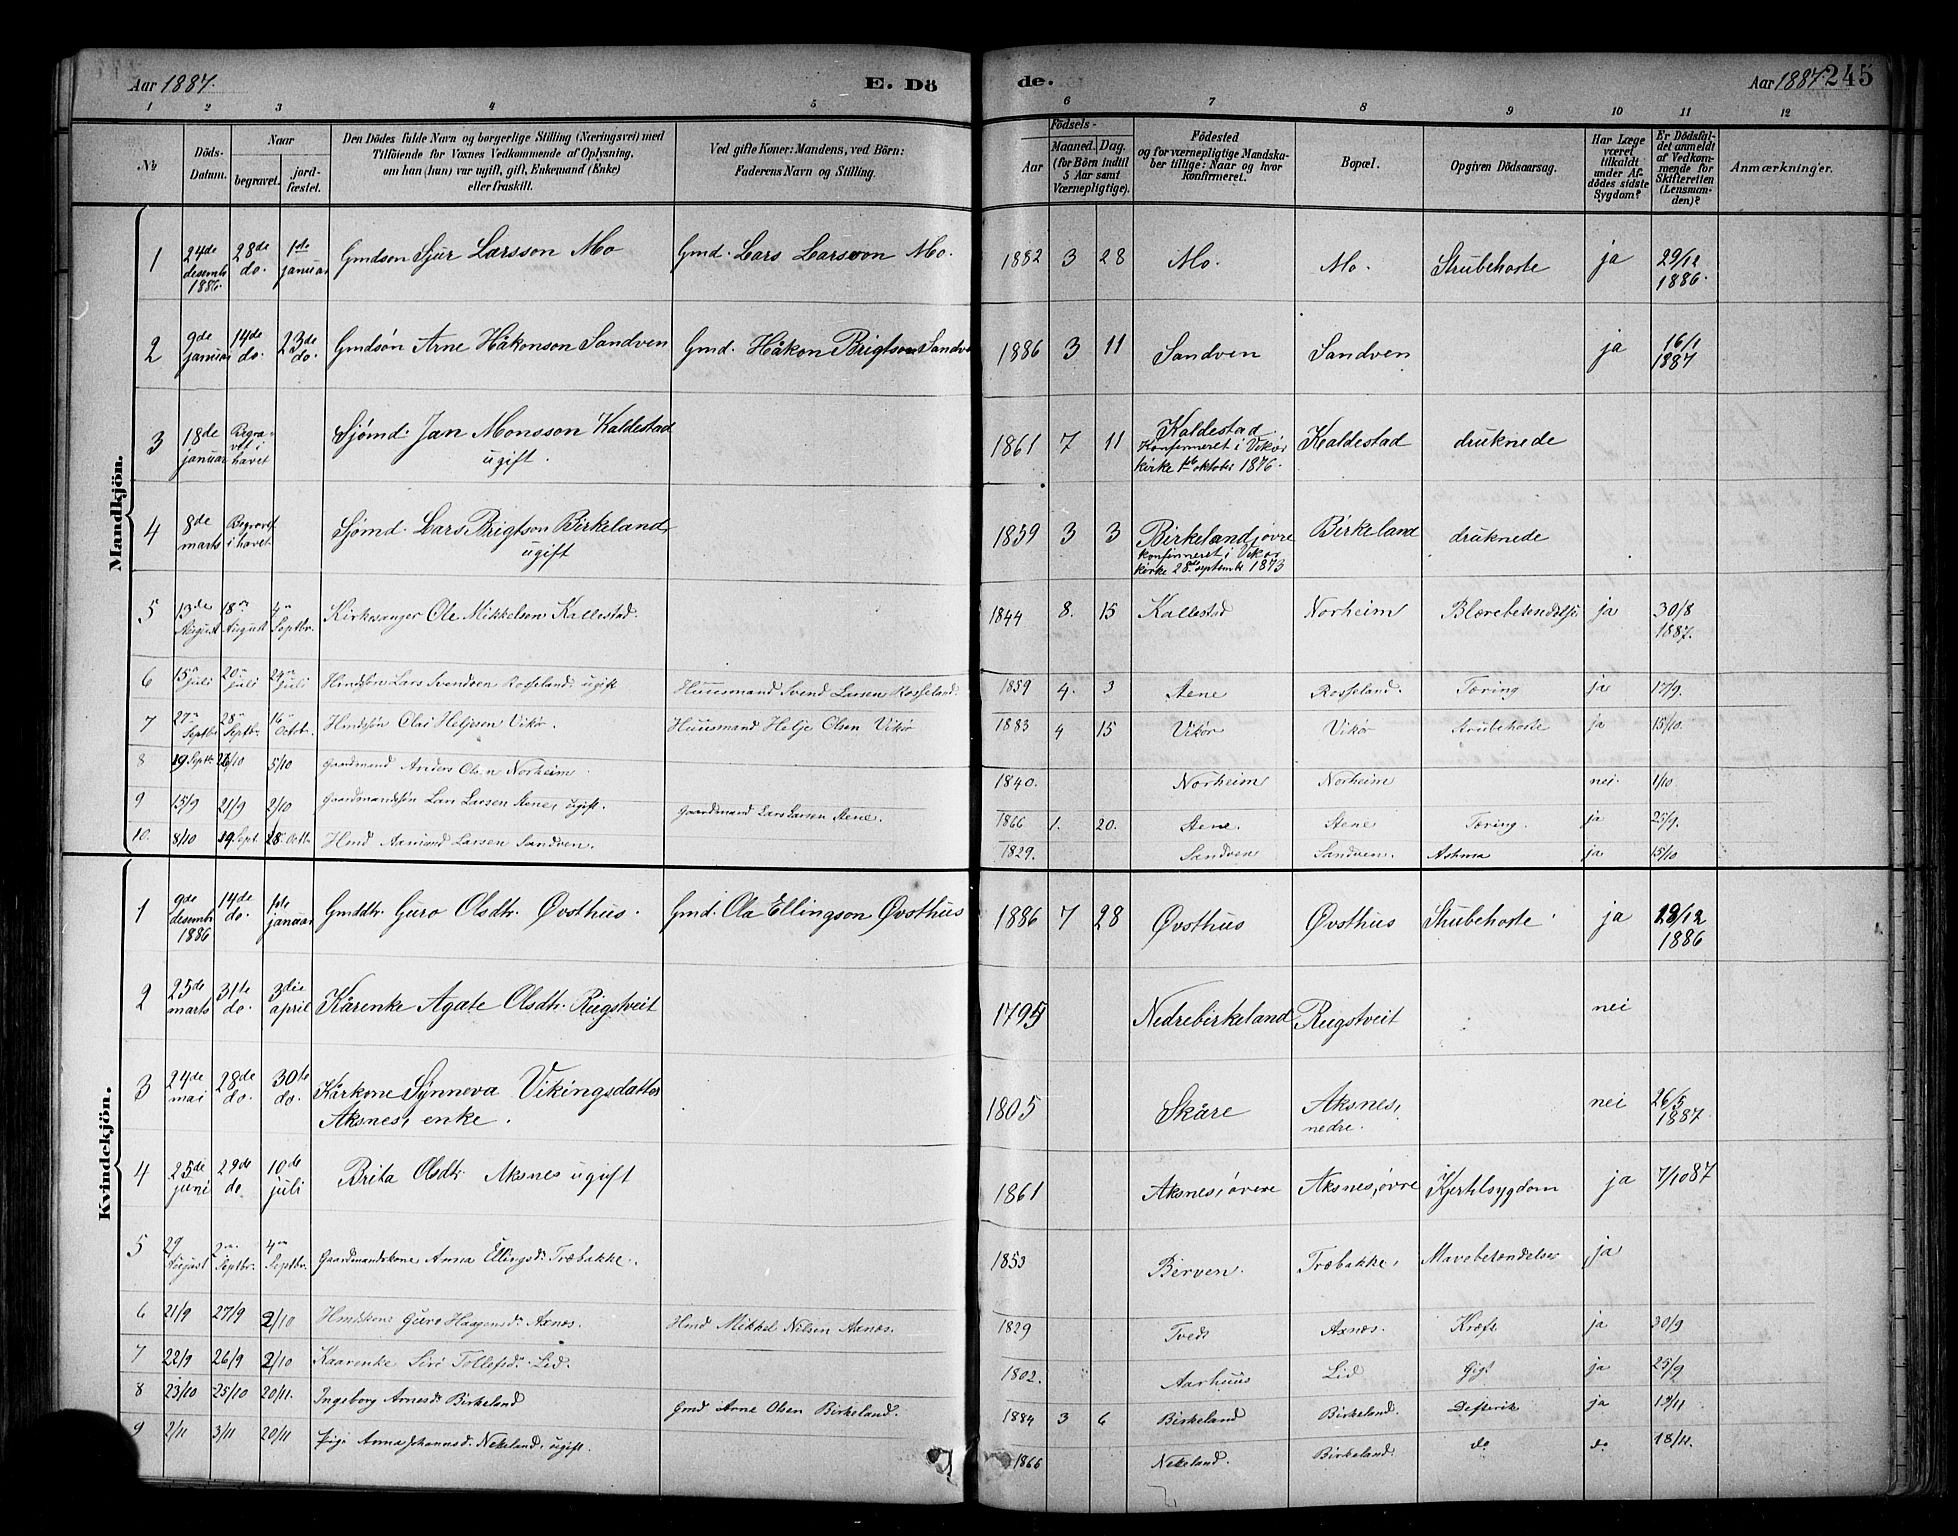 Aar 1887.
E. Dö
de.
Aar 1887. 245
1 2 3 4 5 6 7 8 9 10 11 12
No
Döds-Datum.
Naar
begravet.
jordfæstet.
Den Dödes fulde Navn og borgerlige Stilling (Næringsvei) med
Tilföiende for Voxnes Vedkommende af Oplysning,
om han (hun) var ugift, gift, Enkemand (Enke)
eller fraskilt.
Ved gifte Koner: Mandens, ved Börn:
Faderens Navn og Stilling.
Födsels-
Aar
Maaned. Dag.
(for Börn indtil
5 Aar samt
Værnepligtige).
Födested
og for værnepligtige Mandskaber tillige: Naar og hvor
konfirmeret.
Bopæl.
Opgiven Dödsaarsag.
Har Læge
været
tilkaldt
under Afdödes sidste
Sygdom?
Er Dödsfaldet anmeldt
af Vedkommende for
Skifteretten
(Lensmanden)?
Anmærkninger.
Mandkjön.
1 24de desembr 1886. 28de do. 1ste januar Gmdsøn Sjur Larsson Mo Gmd. Lars Larsson Mo. 1882 3 28 Mo. Mo. Strubehoste ja 29/12 1886.
2 9de januar 14de do. 23de do. Gmdsøn Arne Håkonson Sandven Gmd. Håkon Brigtson Sandve 1886 3 11 Sandven Sandven ja 16/1 1887
3 18de januar Begravet i havet Sjømd. Jan Monsson Kaldestad ugift. 1861 7 11 Kaldestad. Konfirmeret i Vikør kirke 1ste oktober 1876. Kaldestad druknede
4 8de marts Begravet i havet Sjømd. Lars Brigtson Birkeland, ugift 1859 3 3 Birkeland, øvre konfirmeret i Vikør kirke 28de septembr 1873 Birkeland druknede
5 13de August 18n August 4n Septbr. Kirkesanger Ole Mikkelsen Kallestad. 1844 8. 15 Kallestad Norheim Blærebetændelse ja 30/8 1887.
6 15n juli 20n juli 24n juli Hmdssøn Lars Svendsen Rosseland. ugift Huusmand Svend Larsen Rosseland. 1859 4. 3 Aene Rosseland. Tæring ja 17/9.
7 27n Septbr 28n Septbr. 16n Octbr. Hmdssøn Olai Heljesen Vikør. Huusmand Helje Olsen Vikør 1883 4 15 Vikør Vikør Strubehoste ja 15/10.
8 29 Septbr 26/10 5/10 Gaardmand Anders Olsen Norheim. 1840. Norheim Norheim nei 1/10
9 15/9 21/9 2/10 Gaardmandssøn Lars Larsen Aene, ugift. Gaardmand Lars Larsen Aene. 1866 1. 20. Aene. Aene Tæring. ja 25/9.
10. 8/10 Hmd Aamund Larsen Sandven. 1829. Sandven Sandven. Asthma ja 15/10
Kvindekjön.
1 9de desembr 1886 14de do. 1ste januar Gmddtr. Guro Olsdtr. Øvsthus. Gmd. Ola Ellingson Øvsthus 1886 7 28 Øvsthus Øvsthus Strubehoste ja 28/12 1886
2 25de marts 31te do. 3die april Kårenke Agate Olsdtr. Rugstveit 1795 Nedrebirkeland Rugstveit nei
3 24de mai 28de do. 30te do. Kårkone Synneva Vikingsdatter Aksnes, enke. 1805 Skåre Aksnes, nedre. nei 26/5 1887
4 25de juni 29de do. 10de juli Brita Olsdtr. Aksnes ugift 1861 Aksnes, øvre Aksnes, øvre Kjertelsygdom ja 7/10 87
5 29 August 2n Septbr. 4n Septbr. Gaardmandskone Anna Ellingsdr Træbakke. 1853 Berven. Træbakke, Mavebetændelse ja
6 21/9 27/9 2/10 Hmdskone Guro Haagensdr Axnes. Hmd Mikkel Nilsen Axnes. 1829 Tveds Axnes. Kræft ja 30/9
7 22/9 26/9 2/10 Kaarenke Siri Tollefsd. Lid. 1802. Aarhuus Lid Gigt ja 25/9
8 23/10 25/10 20/11. Ingeborg Arnesd. Birkeland Gmd Arne Olsen Birkeland. 1884 3 6 Birkeland Birkeland. Difterit ja 19/11
9 2/11 3/11 20/11 Pige Anna Johannesd. Nekeland, ugift. 1866 Nekeland. Birkeland. do do 18/11.